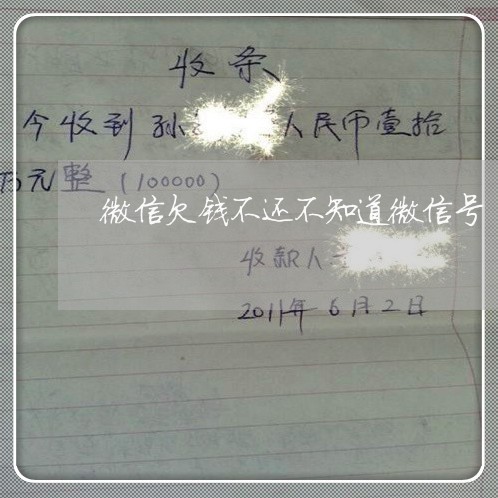 收条
今收到孙 人民币壹拾
万元整(100000)
微信欠钱不还不知道微信号
收款人
2011年6月2日